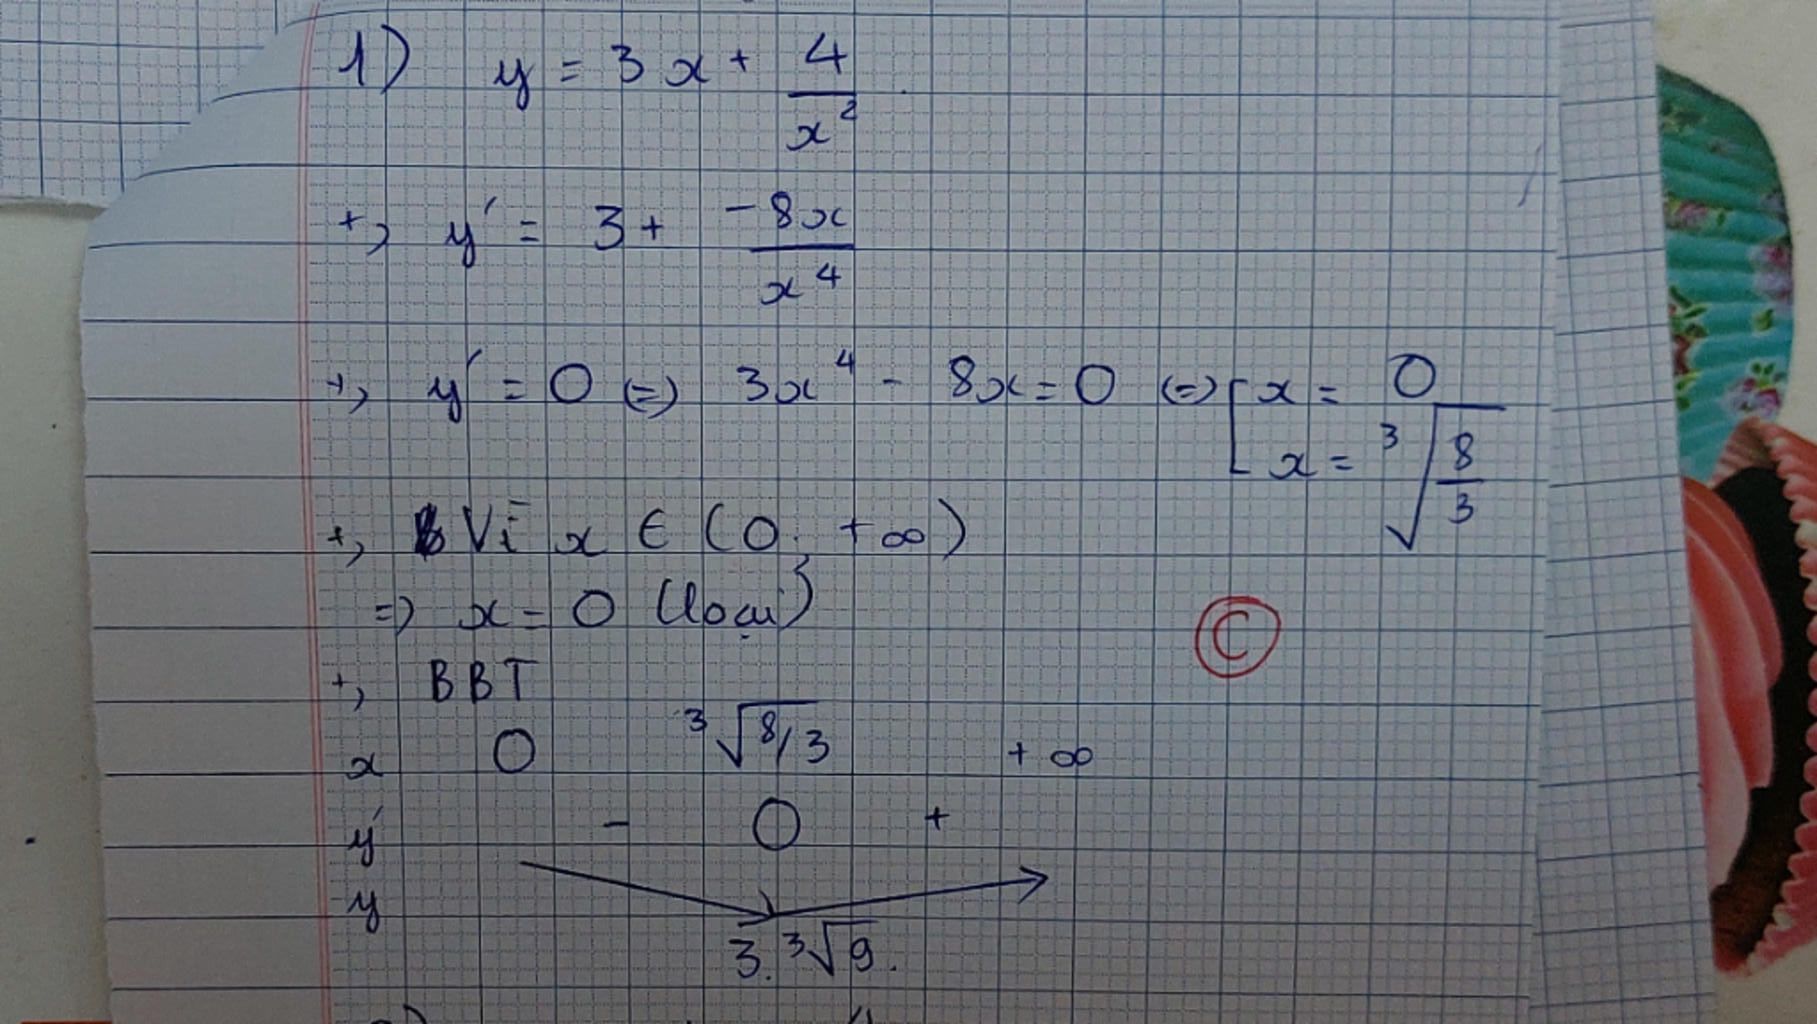 1) y = 3x + 4/x²
+, y' = 3 + -8x/x⁴
+, y' = 0 (=) 3x⁴ - 8x = 0 (=) [x = 0
[x = ³√(8/3)
+, Vì x ∈ (0; +∞)
=) x = 0 (loại)
C
+, BBT
x 0 ³√8/3 +∞
y' - 0 +
y
3.³√9.